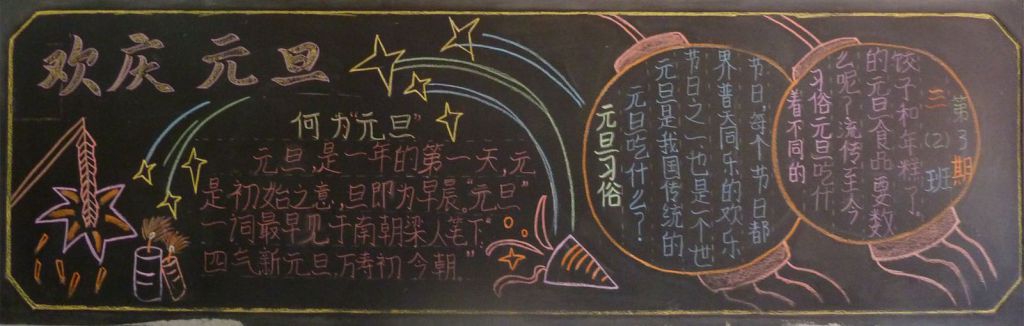 欢庆元旦
何为"元旦"
元旦,是一年的第一天,元
是初始之意,旦即为早晨。"元旦"
一词最早见于南朝梁人笔下:
四气新元旦,万寿初今朝。"
元旦习俗
元旦吃什么?
元旦是我国传统的
节日之一也是一个世
界普天同乐的欢乐
节日,每个节日都
着不同的
习俗元旦吃什
么呢?流传至今
的元旦食品要数
饺子和年糕了。
三(2)班
第3期